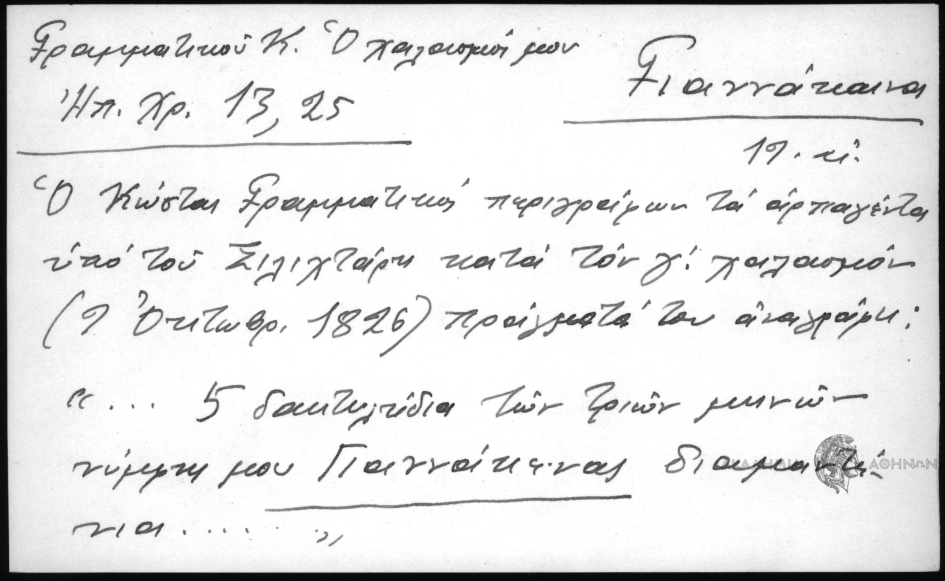 Γραμματικοῦ Κ. Ὁ χαλασμός μου
Ἠπ. Χρ. 13, 25
Γιαννάκαινα
19. αἰ.
Ὁ Κώστας Γραμματικός περιγράφων τά ἁρπαγέντα
ὑπό τοῦ Σιλιχτάρη κατά τόν γ΄. χαλασμόν
(9 Ὀκτωβρ. 1826) πράγματά του ἀναγράφει:
"... 5 δακτυλίδια τῶν τριῶν μηνῶν
νύμφης μου Γιαννάκενας διαμαντέ-
νια ...... "
ΑΘΗΝΩΝ